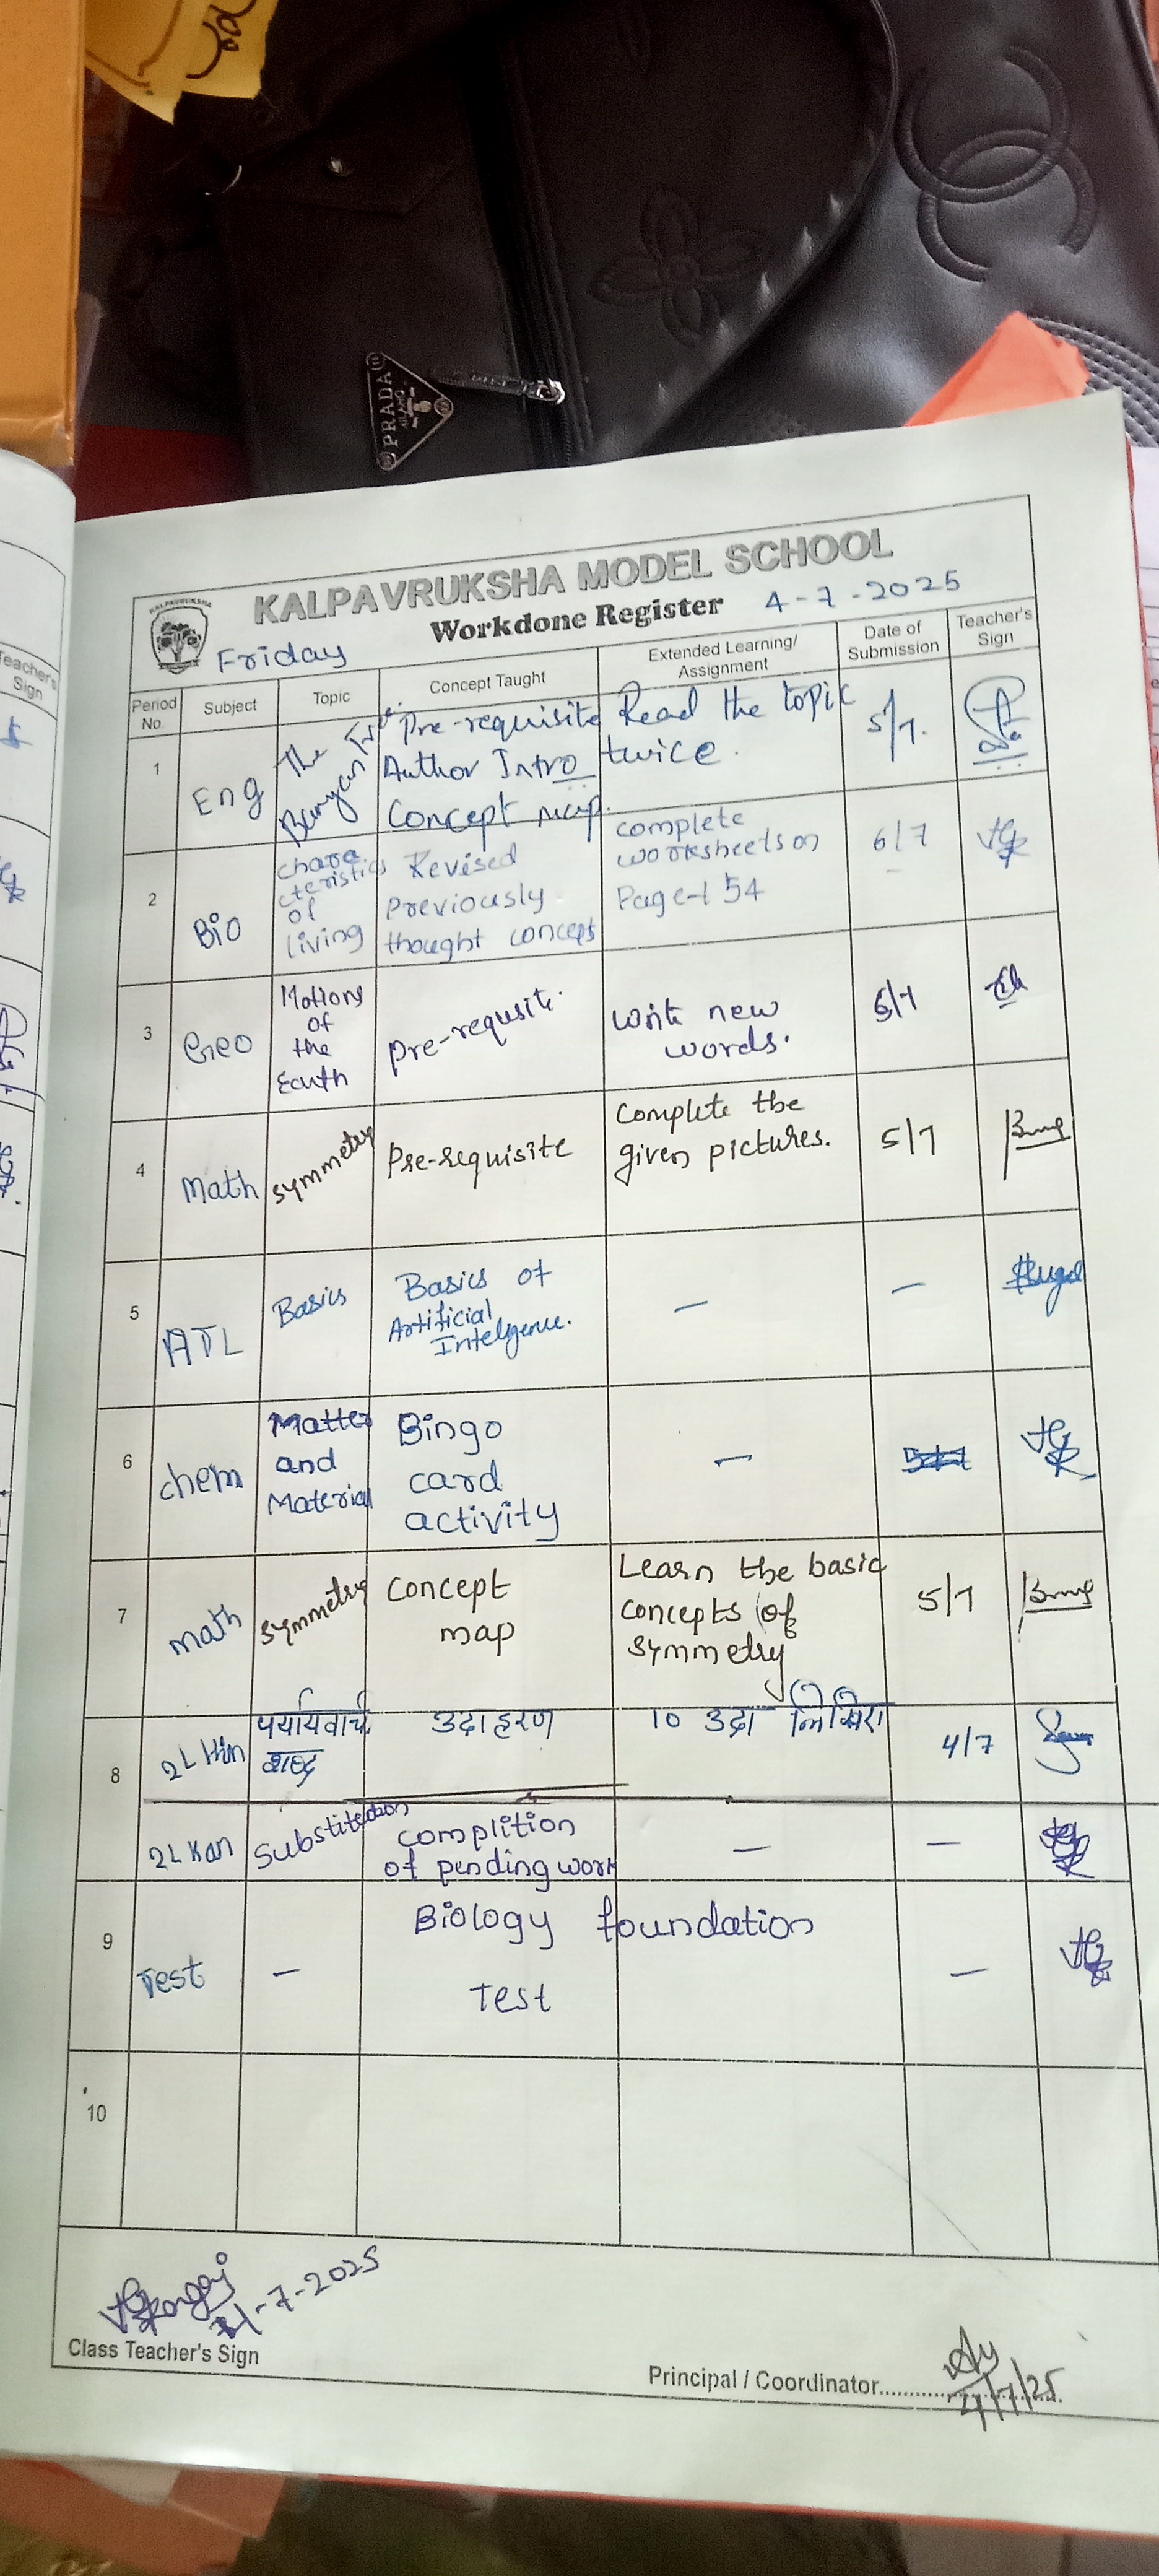 PRADA
MILANO
KALPAVRUKSHA
KALPAVRUKSHA MODEL SCHOOL
Workdone Register 4-7-2025
Friday
Period No. Subject Topic Concept Taught Extended Learning/ Assignment Date of Submission Teacher's Sign
1 Eng The Banyan Tree. Pre-requisite Read the topic 5/7.
Author Intro twice.
Concept recap.
2 Bio chara cteristics of living Revised complete 6/7
Previously worksheets on
thought concept Page-154
3 Geo Motions of the Earth Pre-requsite. Write new words. 5/7
4 Math symmetry Pre-requisite Complete the given pictures. 5/7
5 ATL Basics Basics of Artificial Intelgence. — —
6 chem Matter and Material Bingo card activity —
7 math symmetry concept map Learn the basic concepts of symmetry 5/7
8 2L Hin पर्यायवाची शब्द उदाहरण 10 उदा 4/7
2L Kan Substitution complition of pending work — —
9 Test — Biology foundation Test —
10
-7-2025
Class Teacher's Sign
Principal / Coordinator
4/7/25
Teacher's
Sign